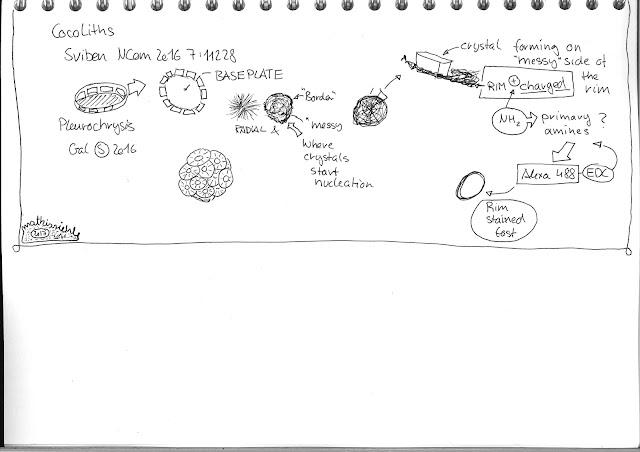 CocoLiths
Sviben NCom 2016 7:11228
BASEPLATE
Pleurochrysis
Gal (S) 2016
RADIAL
"Border"
"messy
Where
crystals
start
nucleation
crystal forming on
"messy" side of
the
rim
RIM + charged
NH2
primary
amines ?
Alexa 488
EDC
Rim
stained
fast
2017